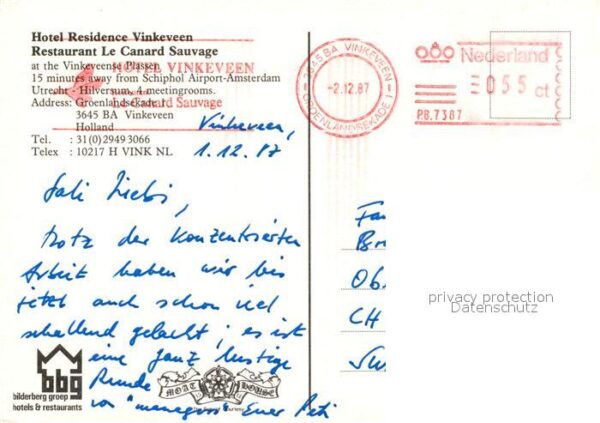 Hotel Residence Vinkeveen
Restaurant Le Canard Sauvage
at the Vinkeveense Plassen
15 minutes away from Schiphol Airport-Amsterdam
Utrecht Hilversum, 4 meetingrooms.
Address: Groenlandsekade 1
3645 BA Vinkeveen
Holland
Tel. : 31(0)2949 3066
Telex : 10217 H VINK NL
HOTEL VINKEVEEN
Le Canard Sauvage
3645 BA VINKEVEEN
GROENLANDSEKADE 1
-2.12.87
Nederland
055 ct
P.B. 7387
Vinkeveen,
1.12.87
Sali Liebi,
Trotz der konzentrierten
Arbeit haben wir bis
jetzt auch schon viel
schallend gelacht; es ist
eine ganz lustige
Runde
von "managers" Euer
Fa
Br
Ob.
CH
privacy protection
Datenschutz
bbg
bilderberg groep
hotels & restaurants
MOAT HOUSE